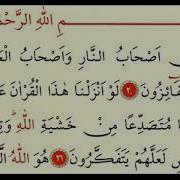 مِ اللهِ الرَّحْمٰ
أَصْحَابُ النَّارِ وَأَصْحَابُ الْ
فَائِزُونَ ﴿٢٠﴾ لَوْ أَنْزَلْنَا هٰذَا الْقُرْاٰنَ
مُتَصَدِّعًا مِنْ خَشْيَةِ اللهِ وَ
سِ لَعَلَّهُمْ يَتَفَكَّرُونَ ﴿٢١﴾ هُوَ اللهُ